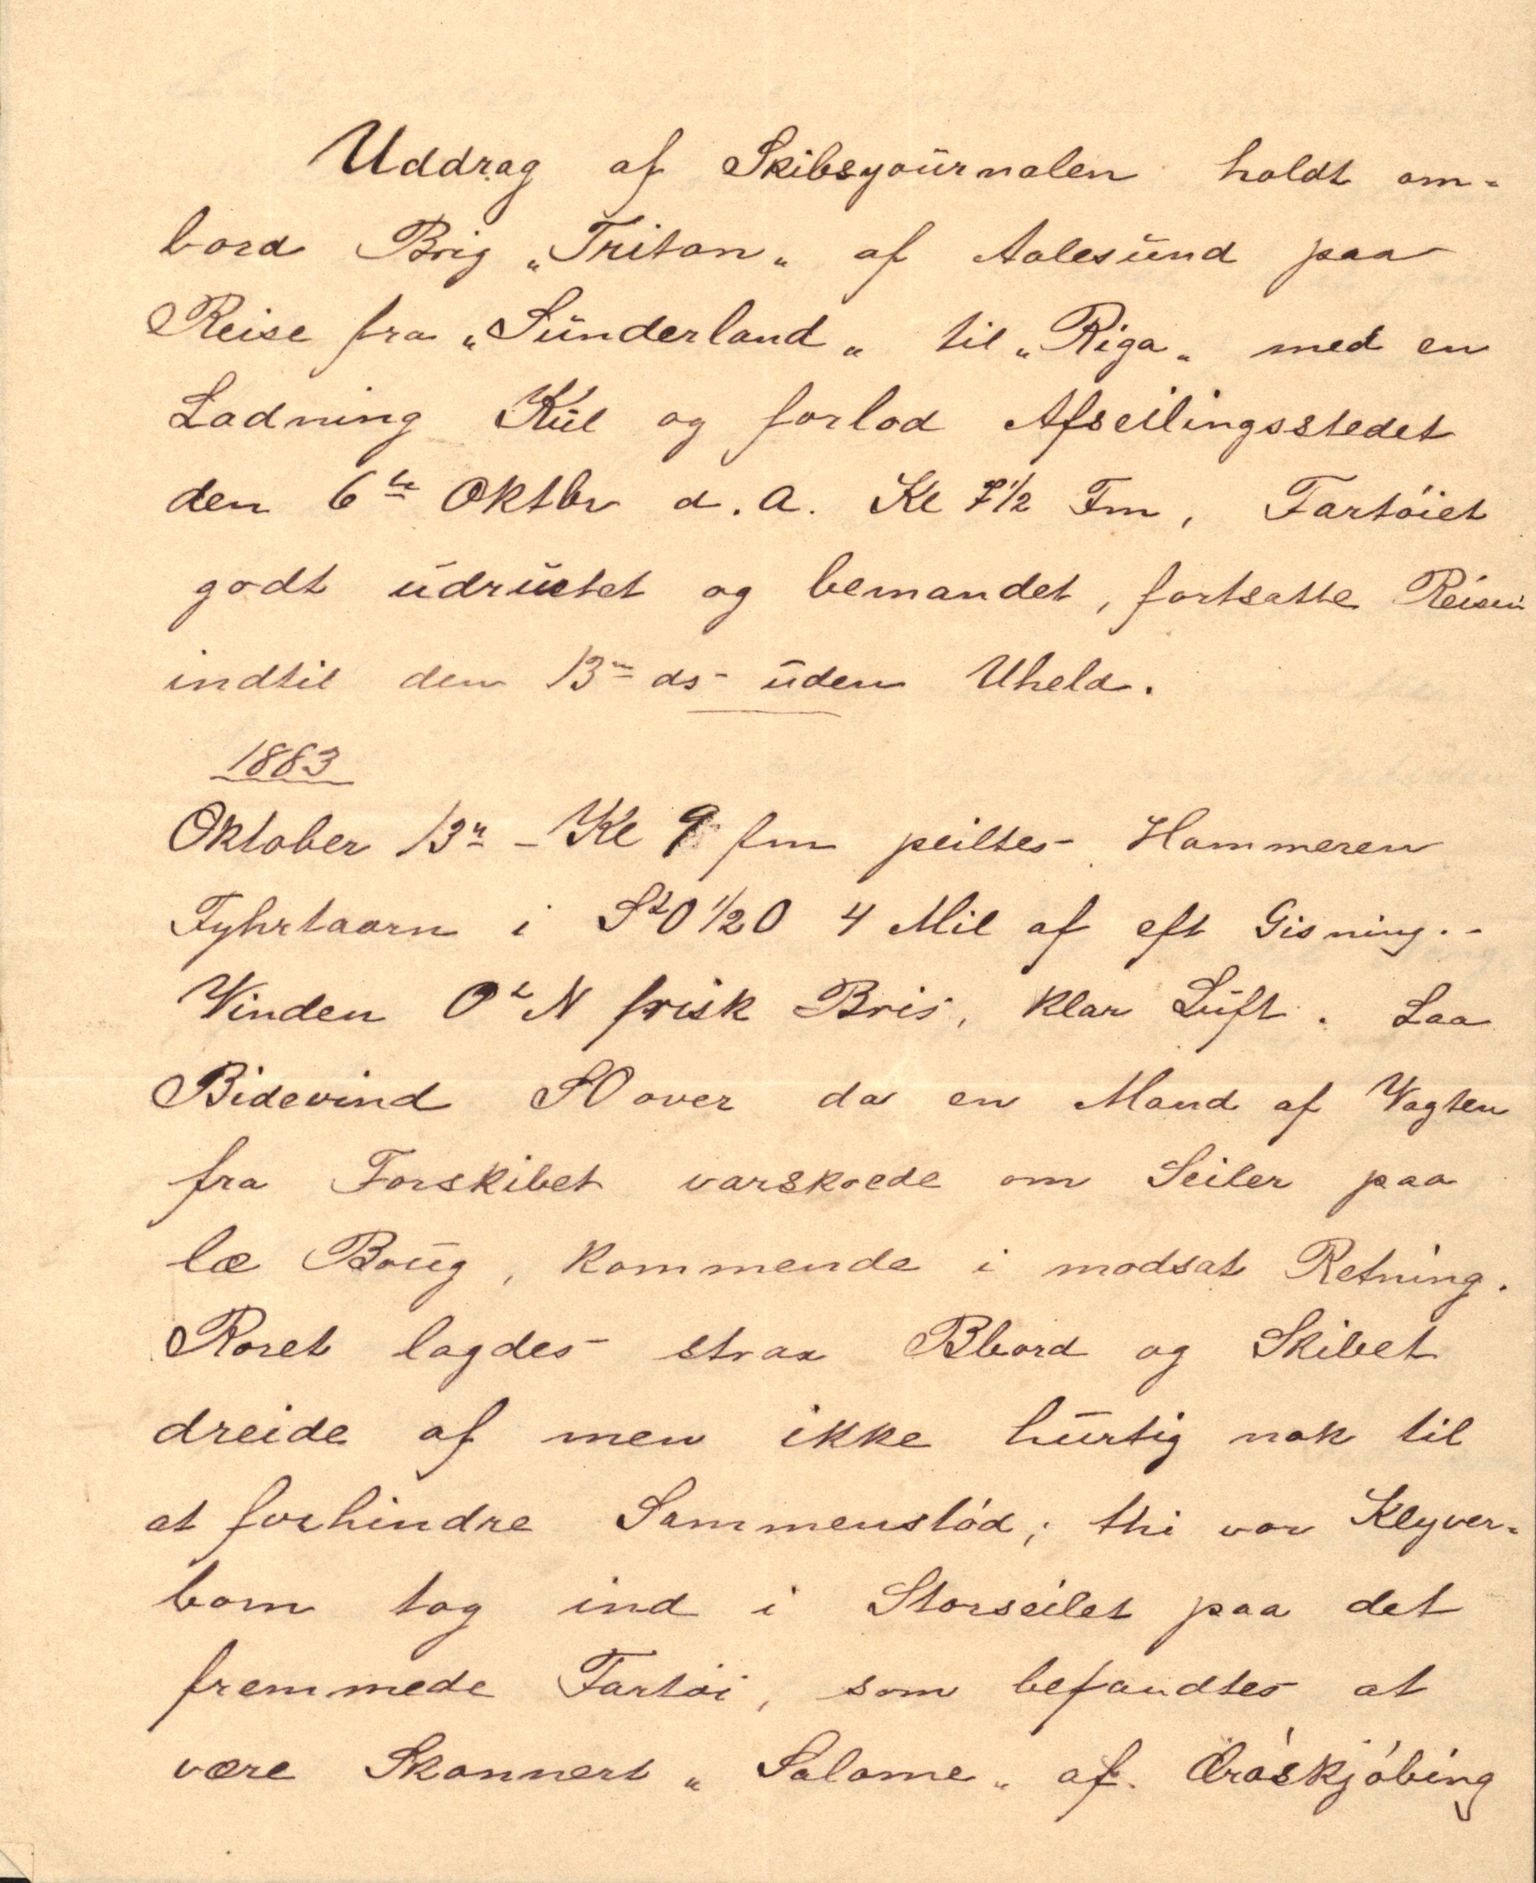 Uddrag af Skibsjournalen holdt om-
bord Brig „Triton„ af Aalesund paa
Reise fra „Sunderland„ til „Riga„ med en
Ladning Kul og forlod Afseilingsstedet
den 6te Oktbr d. A. Kl 7½ Fm, Fartöiet
godt udrustet og bemandet, fortsatte Reisen
indtil den 13n ds uden Uheld.
1883
Oktober 13n - Kl 9 fm peiltes Hammeren
Fyhrtaarn i StO½O 4 Mil af eft Gisning.-
Vinden Ot N frisk Bris, klar Luft. Laa
Bidevind SO over da en Mand af Vagten
fra Forskibet varskoede om Seiler paa
læ Boug, kommende i modsat Retning.
Roret lagdes strax Bbord og Skibet
dreide af men ikke hurtig nok til
at forhindre Sammenstöd; thi vor Klyver-
bom tog ind i Storseilet paa det
fremmede Fartöi, som befandtes at
være Skonnert „Salome„ af Æröskjöbing